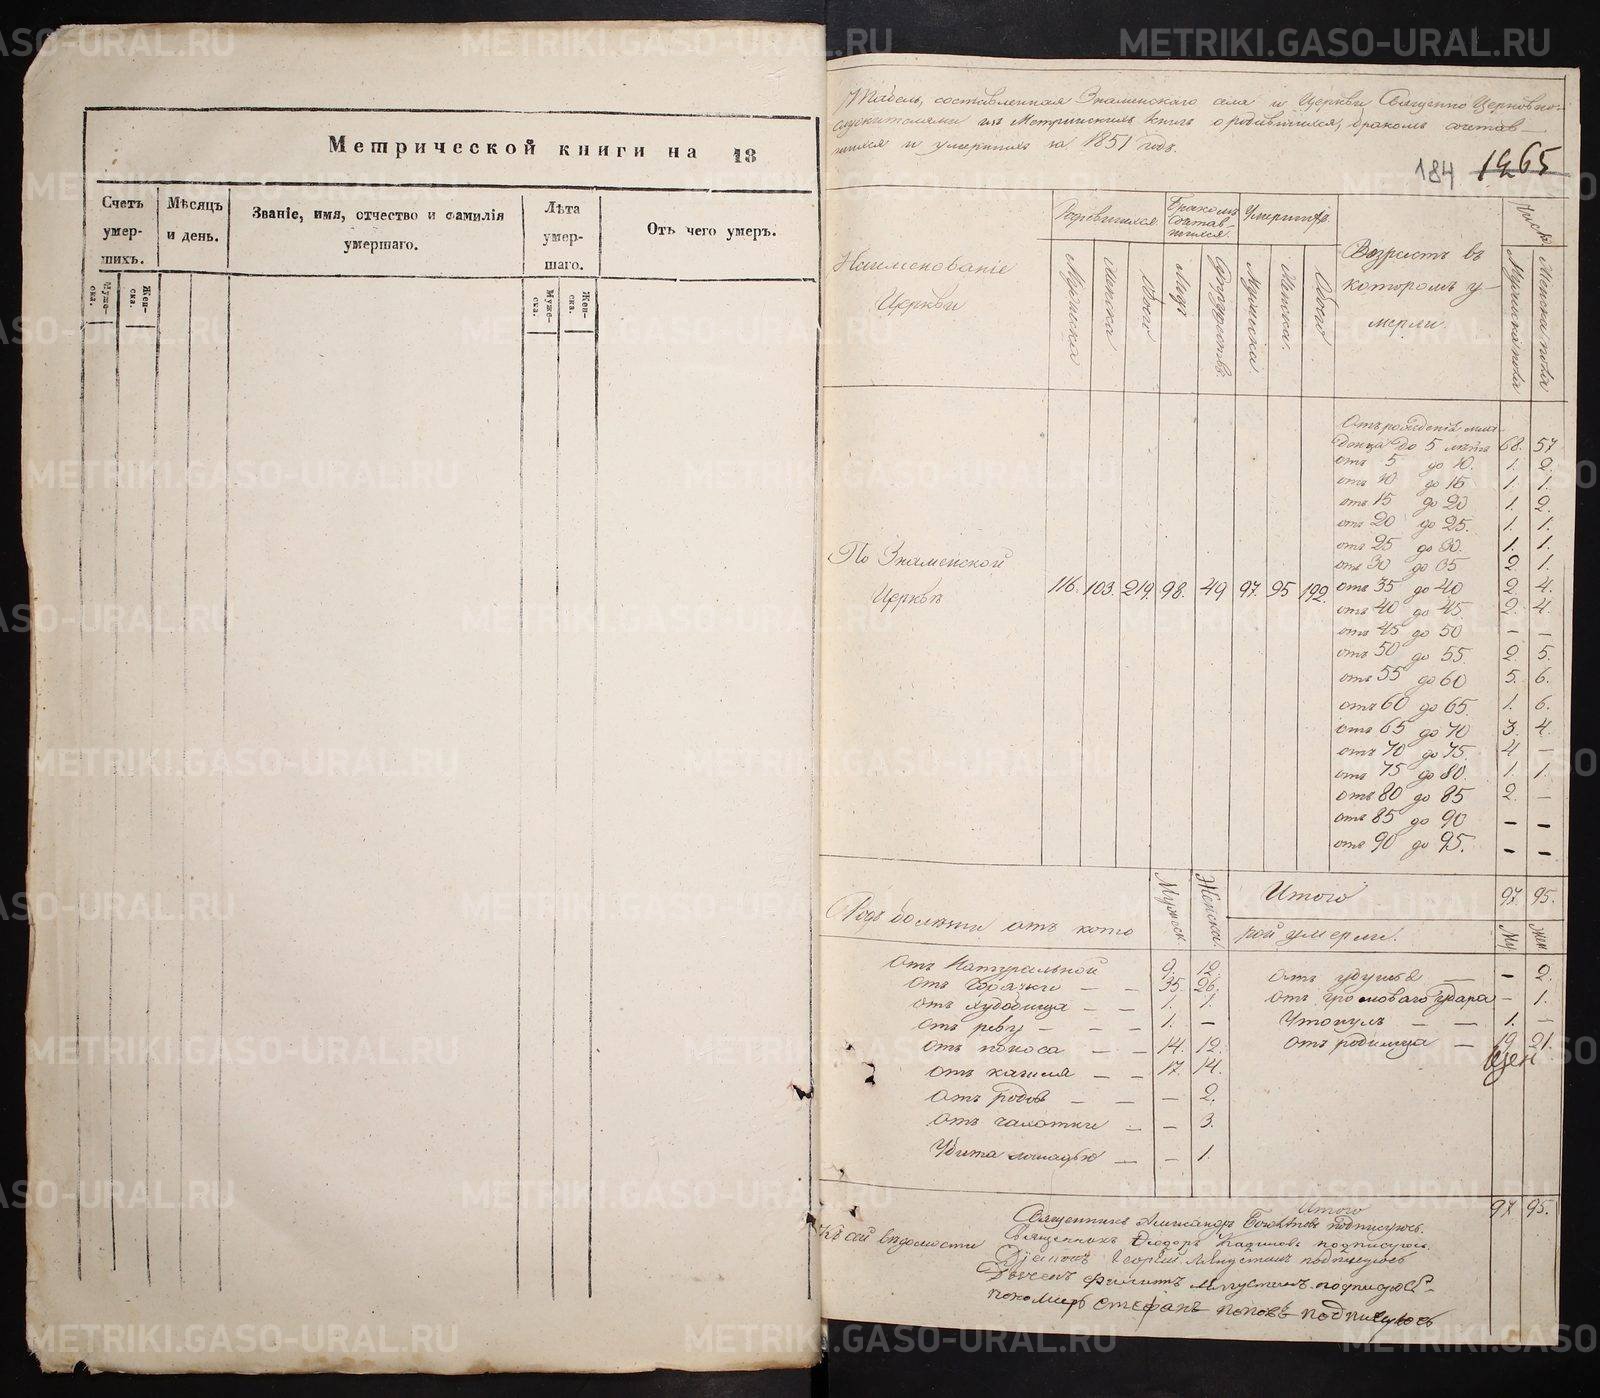 Метрической книги на 18
Счетъ умер-шихъ.
Мѣсяцъ и день.
Званіе, имя, отчество и фамилія умершаго.
Лѣта умер-шаго.
Отъ чего умеръ.
Муже-ска.
Жен-ска.
Муже-ска.
Жен-ска.
Табель, составленная Знаменскаго села и Церкви Священно Церковно-
служителями изъ Метрическихъ книгъ о родившихся, бракомъ сочетав-
шихся и умершихъ за 1851 годъ.
184 1265
Наименованіе Церкви
Родившихся
Бракомъ сочетав-шихся.
Умершихъ
Возрастъ въ которомъ у-мерли.
Число
Мужеска
Женска
Обоего
Лицъ
Супружествъ
Мужеска
Женска
Обоего
Мужеска пола
Женска пола
Отъ рожденія мла-
денца до 5 лѣтъ 68. 57
отъ 5 до 10. 1. 2.
отъ 10 до 15 1. 1.
отъ 15 до 20 1. 2.
отъ 20 до 25. 1. 1.
отъ 25 до 30. 1. 1.
отъ 30 до 35 2. 1.
По Знаменской Церквѣ 116. 103. 219. 98. 49 97. 95 192.
отъ 35 до 40 2. 4.
отъ 40 до 45. 2. 4.
отъ 45 до 50 — —
отъ 50 до 55. 2. 5.
отъ 55 до 60 5. 6.
отъ 60 до 65. 1. 6.
отъ 65 до 70 3. 4.
отъ 70 до 75. 4 —
отъ 75 до 80. 1. 1.
отъ 80 до 85 2. —
отъ 85 до 90 — —
отъ 90 до 95. — —
Итого 97 95.
Родъ болезни отъ кото Мужеск. Женска. рой умерли. Му Жен
отъ Натуральной 9. 12.
отъ Горячки — — 35. 26.
отъ — — 1. 1.
отъ рѣзу — — — 1. —
отъ поноса — — 14. 12.
отъ кашля — — 17. 14.
отъ родовъ — — — 2.
отъ чахотки — — 3.
Убита лошадью — — 1.
отъ удушья — — 2.
отъ громоваго удара — 1.
Утонулъ — — 1. —
отъ родимца — 19 21.
Итого 97 95.
Къ сей вѣдомости
Священникъ Александръ подписуюсь.
Священникъ Феодоръ подписуюсь.
Діаконъ Георгій подписуюсь
Дьячекъ Филиппъ подписуюсь
пономарь Стефанъ Поповъ подписуюсь
METRIKI.GASO-URAL.RU